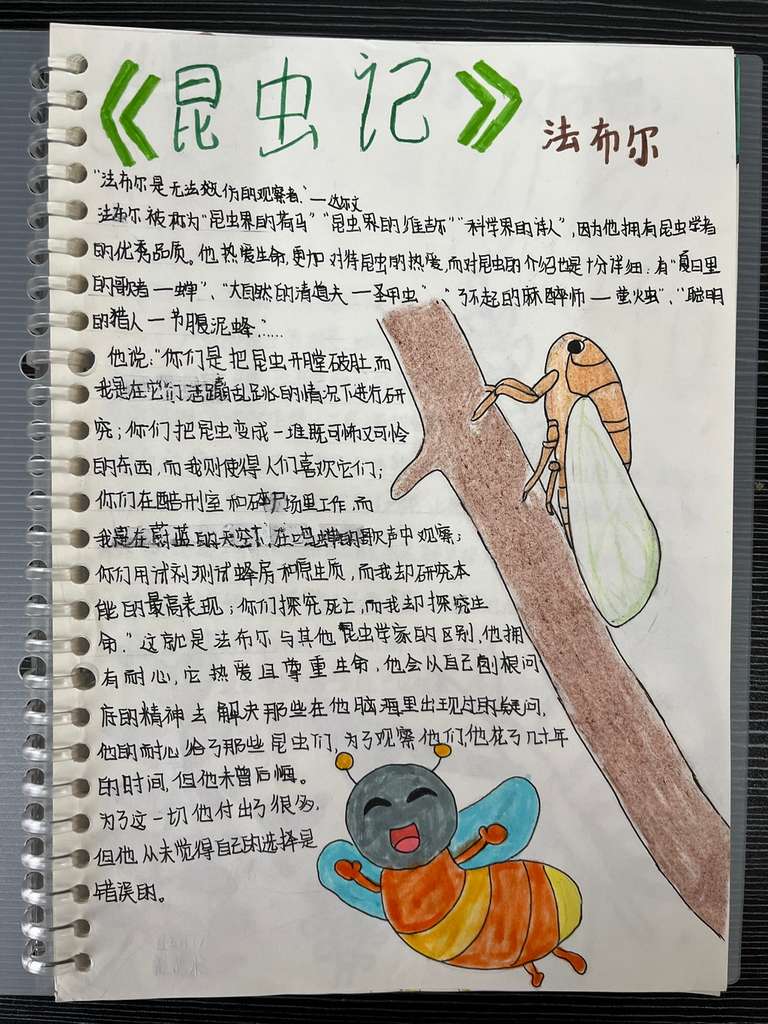 《昆虫记》
法布尔
“法布尔是无法效仿的观察者.”—达尔文
法布尔被称为“昆虫界的荷马”“昆虫界的维吉尔”“科学界的诗人”,因为他拥有昆虫学者
的优秀品质。他热爱生命,更加对待昆虫的热爱,而对昆虫的介绍也是十分详细:有“夏日里
的歌者—蝉”、“大自然的清道夫—圣甲虫”、“了不起的麻醉师—萤火虫”、“聪明
的猎人—节腹泥蜂”……
他说:“你们是把昆虫开膛破肚,而
我是在它们活蹦乱跳的情况下进行研
究;你们把昆虫变成一堆既可怖又可怜
的东西,而我则使得人们喜欢它们;
你们在酷刑室和碎尸场里工作,而
我是在蔚蓝的天空下,在鸣蝉的歌声中观察;
你们用试剂测试蜂房和原生质,而我却研究本
能的最高表现;你们探究死亡,而我却探究生
命.”这就是法布尔与其他昆虫学家的区别,他拥
有耐心,它热爱且尊重生命,他会从自己刨根问
底的精神去解决那些在他脑海里出现过的疑问,
他的耐心给了那些昆虫们,为了观察他们,他花了几十年
的时间,但他未曾后悔。
为了这一切他付出了很多,
但他从未觉得自己的选择是
错误的。